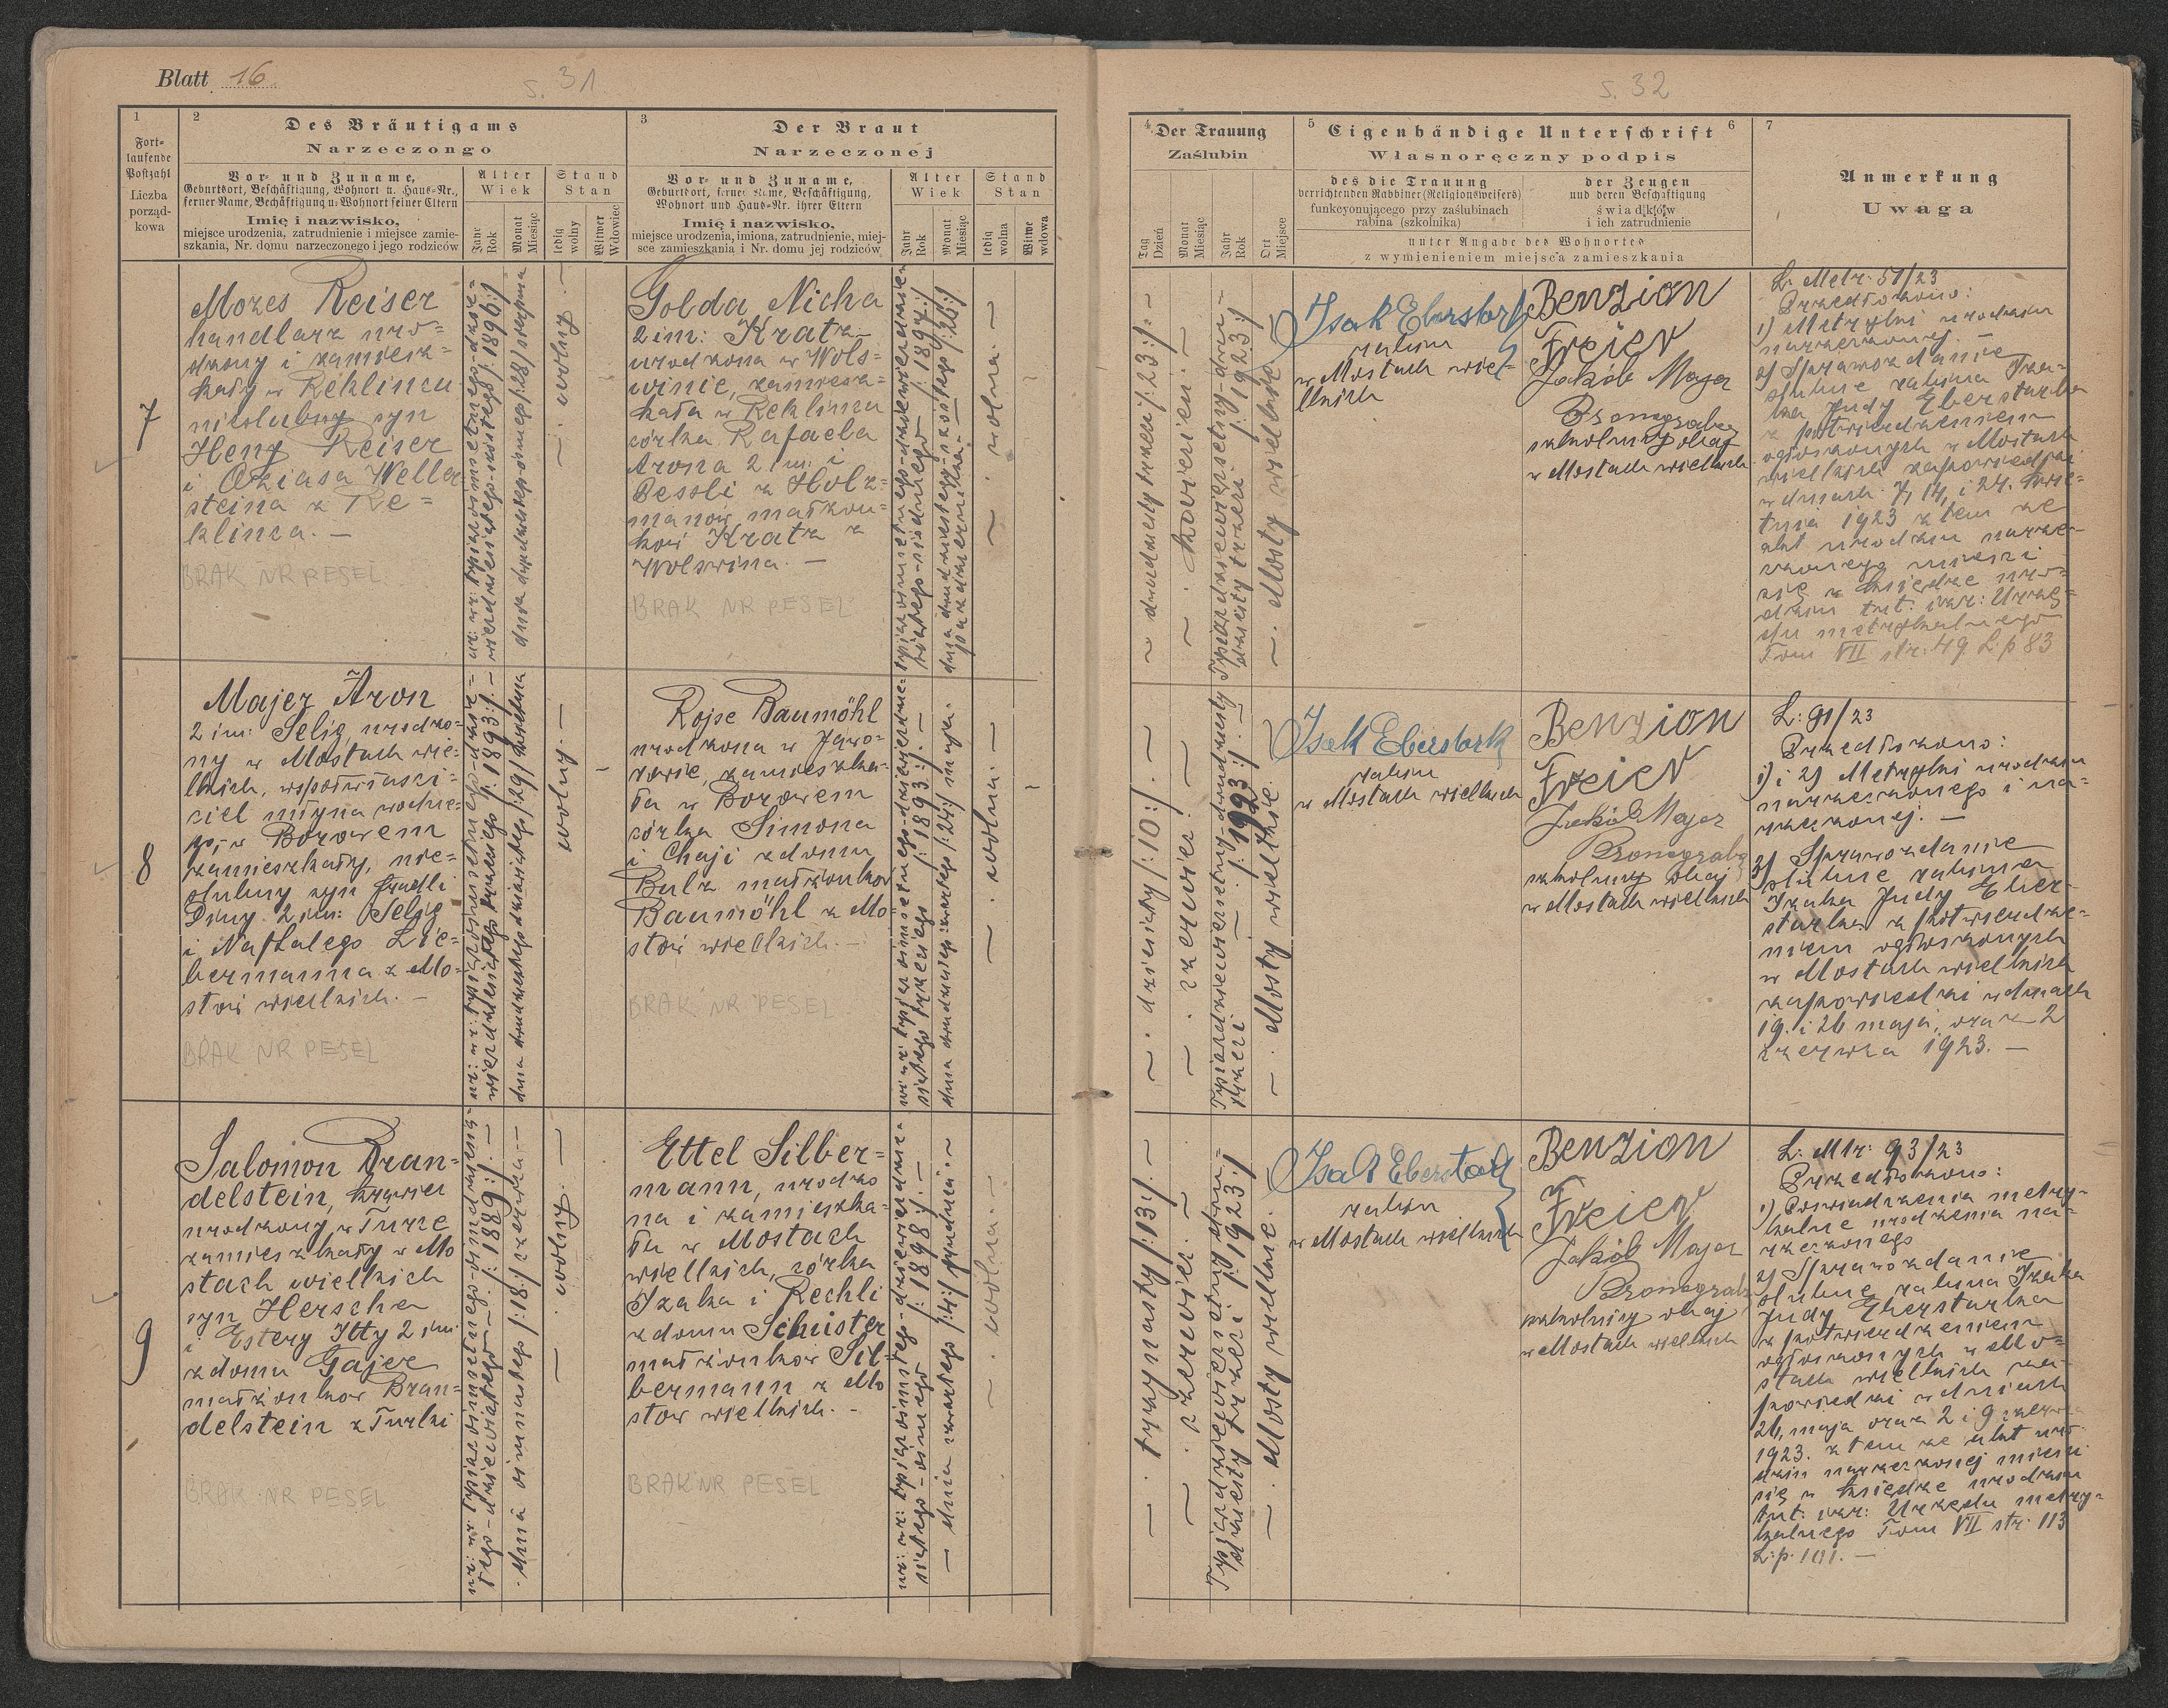 Blatt 16
s. 31
1
Fort-
laufende
Postzahl
Liczba
porząd-
kowa
2
Des Bräutigams
Narzeczongo
Vor- und Zuname,
Geburtsort, Beschäftigung, Wohnort u. Haus-Nr.,
ferner Name, Beschäftigung u. Wohnort seiner Eltern
Imię i nazwisko,
miejsce urodzenia, zatrudnienie i miejsce zamie-
szkania, Nr. domu narzeczonego i jego rodziców
Alter
Wiek
Jahr
Rok
Monat
Miesiąc
Stand
Stan
ledig
wolny
Witwer
Wdowiec
3
Der Braut
Narzeczonej
Vor- und Zuname,
Geburtsort, ferner Name, Beschäftigung,
Wohnort und Haus-Nr. ihrer Eltern
Imię i nazwisko,
miejsce urodzenia, imiona, zatrudnienie, miej-
sce zamieszkania i Nr. domu jej rodziców
Alter
Wiek
Jahr
Rok
Monat
Miesiąc
Stand
Stan
ledig
wolna
Witwe
wdowa
7
Mozes Reiser
handlarz uro=
dzony i zamiesz=
kały w Reklincu
nieślubny syn
Heny Reiser
i Oziasa Weller
steina z Re=
klinca. —
BRAK NR PESEL
wolny
Golda Nicha
2 im: Kratz
urodzona w Wols=
winie, zamiesz=
kała w Reklincu
córka Rafaela
Arona 2 im: i
Bessli z Holz=
manów małżon=
ków Kratz z
Wolswina. —
BRAK NR PESEL
wolna
8
Majer Aron
2 im: Selig urodzo=
ny w Mostach wie=
lkich, współwłaści=
ciel młyna wodne=
go, w Borowem
zamieszkały, nie=
ślubny syn Fradli
Diny 2 im: Selig
i Naftalego Lie=
bermanna z Mo=
stów wielkich. —
BRAK NR PESEL
wolny
Rojse Baumöhl
urodzona w Jawo=
rowie, zamieszka=
ła w Borowem
córka Simona
i Chaji z domu
Bulz małżonków
Baumöhl z Mo=
stów wielkich. —
BRAK NR PESEL
wolna
9
Salomon Bran=
delstein, krawiec
urodzony w Turce
zamieszkały w Mo
stach wielkich
syn Herscha
i Estery Itty 2 im:
z domu Gajer
małżonków Bran=
delstein z Turki
BRAK NR PESEL
wolny
Ettel Silber=
mann, urodzo
na i zamieszka=
ła w Mostach
wielkich, córka
Izaka i Rechli
z domu Schuster
małżonków Sil=
bermann z Mo
stów wielkich. —
BRAK NR PESEL
wolna
s. 32
4
Der Trauung
Zaślubin
Tag
Dzień
Monat
Miesiąc
Jahr
Rok
Ort
Miejsce
5
Eigenhändige Unterschrift
6
Własnoręczny podpis
des die Trauung
verrichtenden Rabbiner (Religionsweisers)
funkcyonującego przy zaślubinach
rabina (szkolnika)
der Zeugen
und deren Beschäftigung
świadków
i ich zatrudnienie
unter Angabe des Wohnortes
z wymienieniem miejsca zamieszkania
7
Anmerkung
Uwaga
dwudziesty trzeci /:23:/
kwiecień
Tysiąc dziewięćsetny dwu=
dziesty trzeci /:1923:/
Mosty wielkie
Isak Eberstark
rabin
w Mostach wie=
lkich
Benzion
Freier
Jakób Majer
Bronograber
szkolnicy obaj
w Mostach wielkich
L: Metr. 51/23
Przedłożono:
1) Metrykę urodzin
narzeczonej. —
2) Sprawozdanie
ślubne rabina Iza=
ka Judy Eberstarka
z potwierdzeniem
ogłoszonych w Mostach
wielkich zapowiedzi
w dniach 7, 14, i 21. kwie=
tnia 1923 z tem że
akt urodzin narze=
czonego mieści
się w księdze uro=
dzin tut: izr: Urzę=
du metrykalnego
Tom VII str: 49 L:p 83
dziesiąty /:10:/
czerwiec
Tysiąc dziewięćsetny dwudziesty
trzeci /:1923:/
Mosty wielkie
Isak Eberstark
rabin
w Mostach wielkich
Benzion
Freier
Jakób Majer
Bronograber
szkolnicy obaj
w Mostach wielkich
L: 91/23
Przedłożono:
1) i 2) Metryki urodzin
narzeczonego i na=
rzeczonej. —
3) Sprawozdanie
ślubne rabina
Izaka Judy Eber=
starka z potwierdze=
niem ogłoszonych
w Mostach wielkich
zapowiedzi w dniach
19. i 26 maja, oraz 2
czerwca 1923. —
trzynasty /:13:/
czerwiec
Tysiąc dziewięćsetny dwu=
dziesty trzeci /:1923:/
Mosty wielkie.
Isak Eberstark
rabin
w Mostach wielkich
Benzion
Freier
Jakób Majer
Bronograber
szkolnicy obaj
w Mostach wielkich
L: Mtr: 93/23
Przedłożono:
1) Poświadczenia metry=
kalne urodzenia na=
rzeczonego
2) Sprawozdanie
ślubne rabina Izaka
Judy Eberstarka
z potwierdzeniem
ogłoszonych w Mo=
stach wielkich za=
powiedzi w dniach
26, maja oraz 2 i 9 czerwca
1923. z tem że akt uro=
dzin narzeczonej mieści
się w księdze urodzin
tut: izr: Urzędu metry=
kalnego Tom VII str: 113
L:p. 191. —